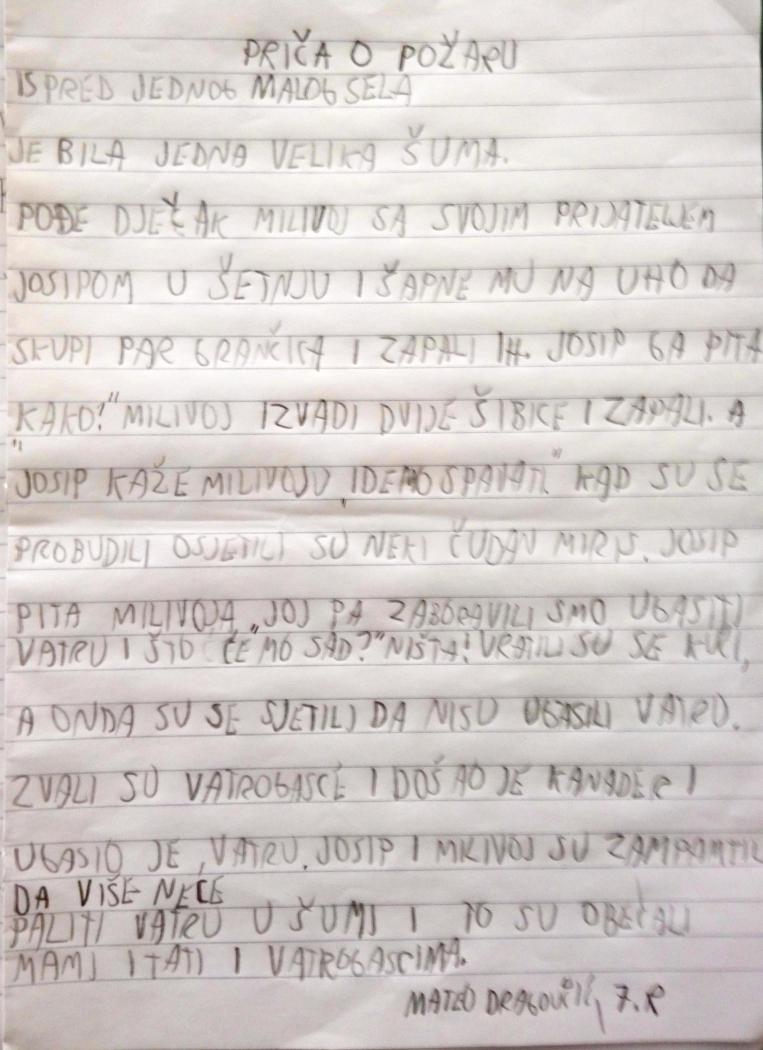 PRIČA O POŽARU
ISPRED JEDNOG MALOG SELA
JE BILA JEDNA VELIKA ŠUMA.
POĐE DJEČAK MILIVOJ SA SVOJIM PRIJATELJEM
JOSIPOM U ŠETNJU I ŠAPNE MU NA UHO DA
SKUPI PAR GRANČICA I ZAPALI IH. JOSIP GA PITA
KAKO?" MILIVOJ IZVADI DVIJE ŠIBICE I ZAPALI. A
"
JOSIP KAŽE MILIVOJU, IDEMO SPAVATI." KAD SU SE
PROBUDILI OSJETILI SU NEKI ČUDAN MIRIS. JOSIP
PITA MILIVOJA „JOJ PA ZABORAVILI SMO UGASITI
VATRU I ŠTO ĆEMO SAD?" NIŠTA! VRATILI SU SE KUĆI,
A ONDA SU SE SJETILI DA NISU UGASILI VATRU.
ZVALI SU VATROGASCE I DOŠAO JE KANADER I
UGASIO JE VATRU. JOSIP I MILIVOJ SU ZAMPAMTILI
DA VIŠE NEĆE
PALITI VATRU U ŠUMI I TO SU OBEĆALI
MAMI I TATI I VATROGASCIMA.
MATEO 7.R